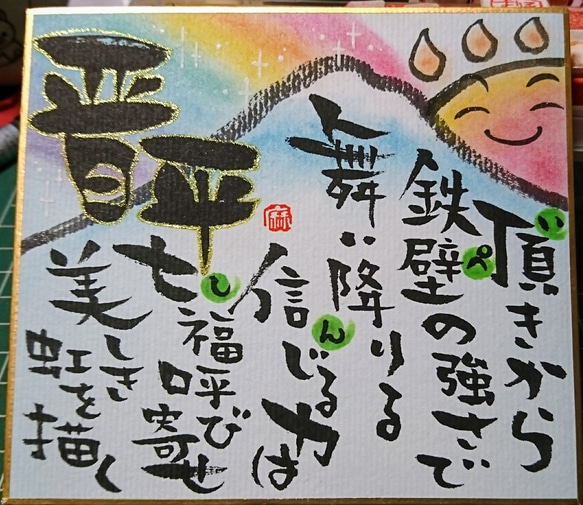 晋平
頂きから
い
鉄壁の強さで
ぺ
舞い降りる
信じる力は
ん
七福呼び寄せ
し
美しき
虹を描く